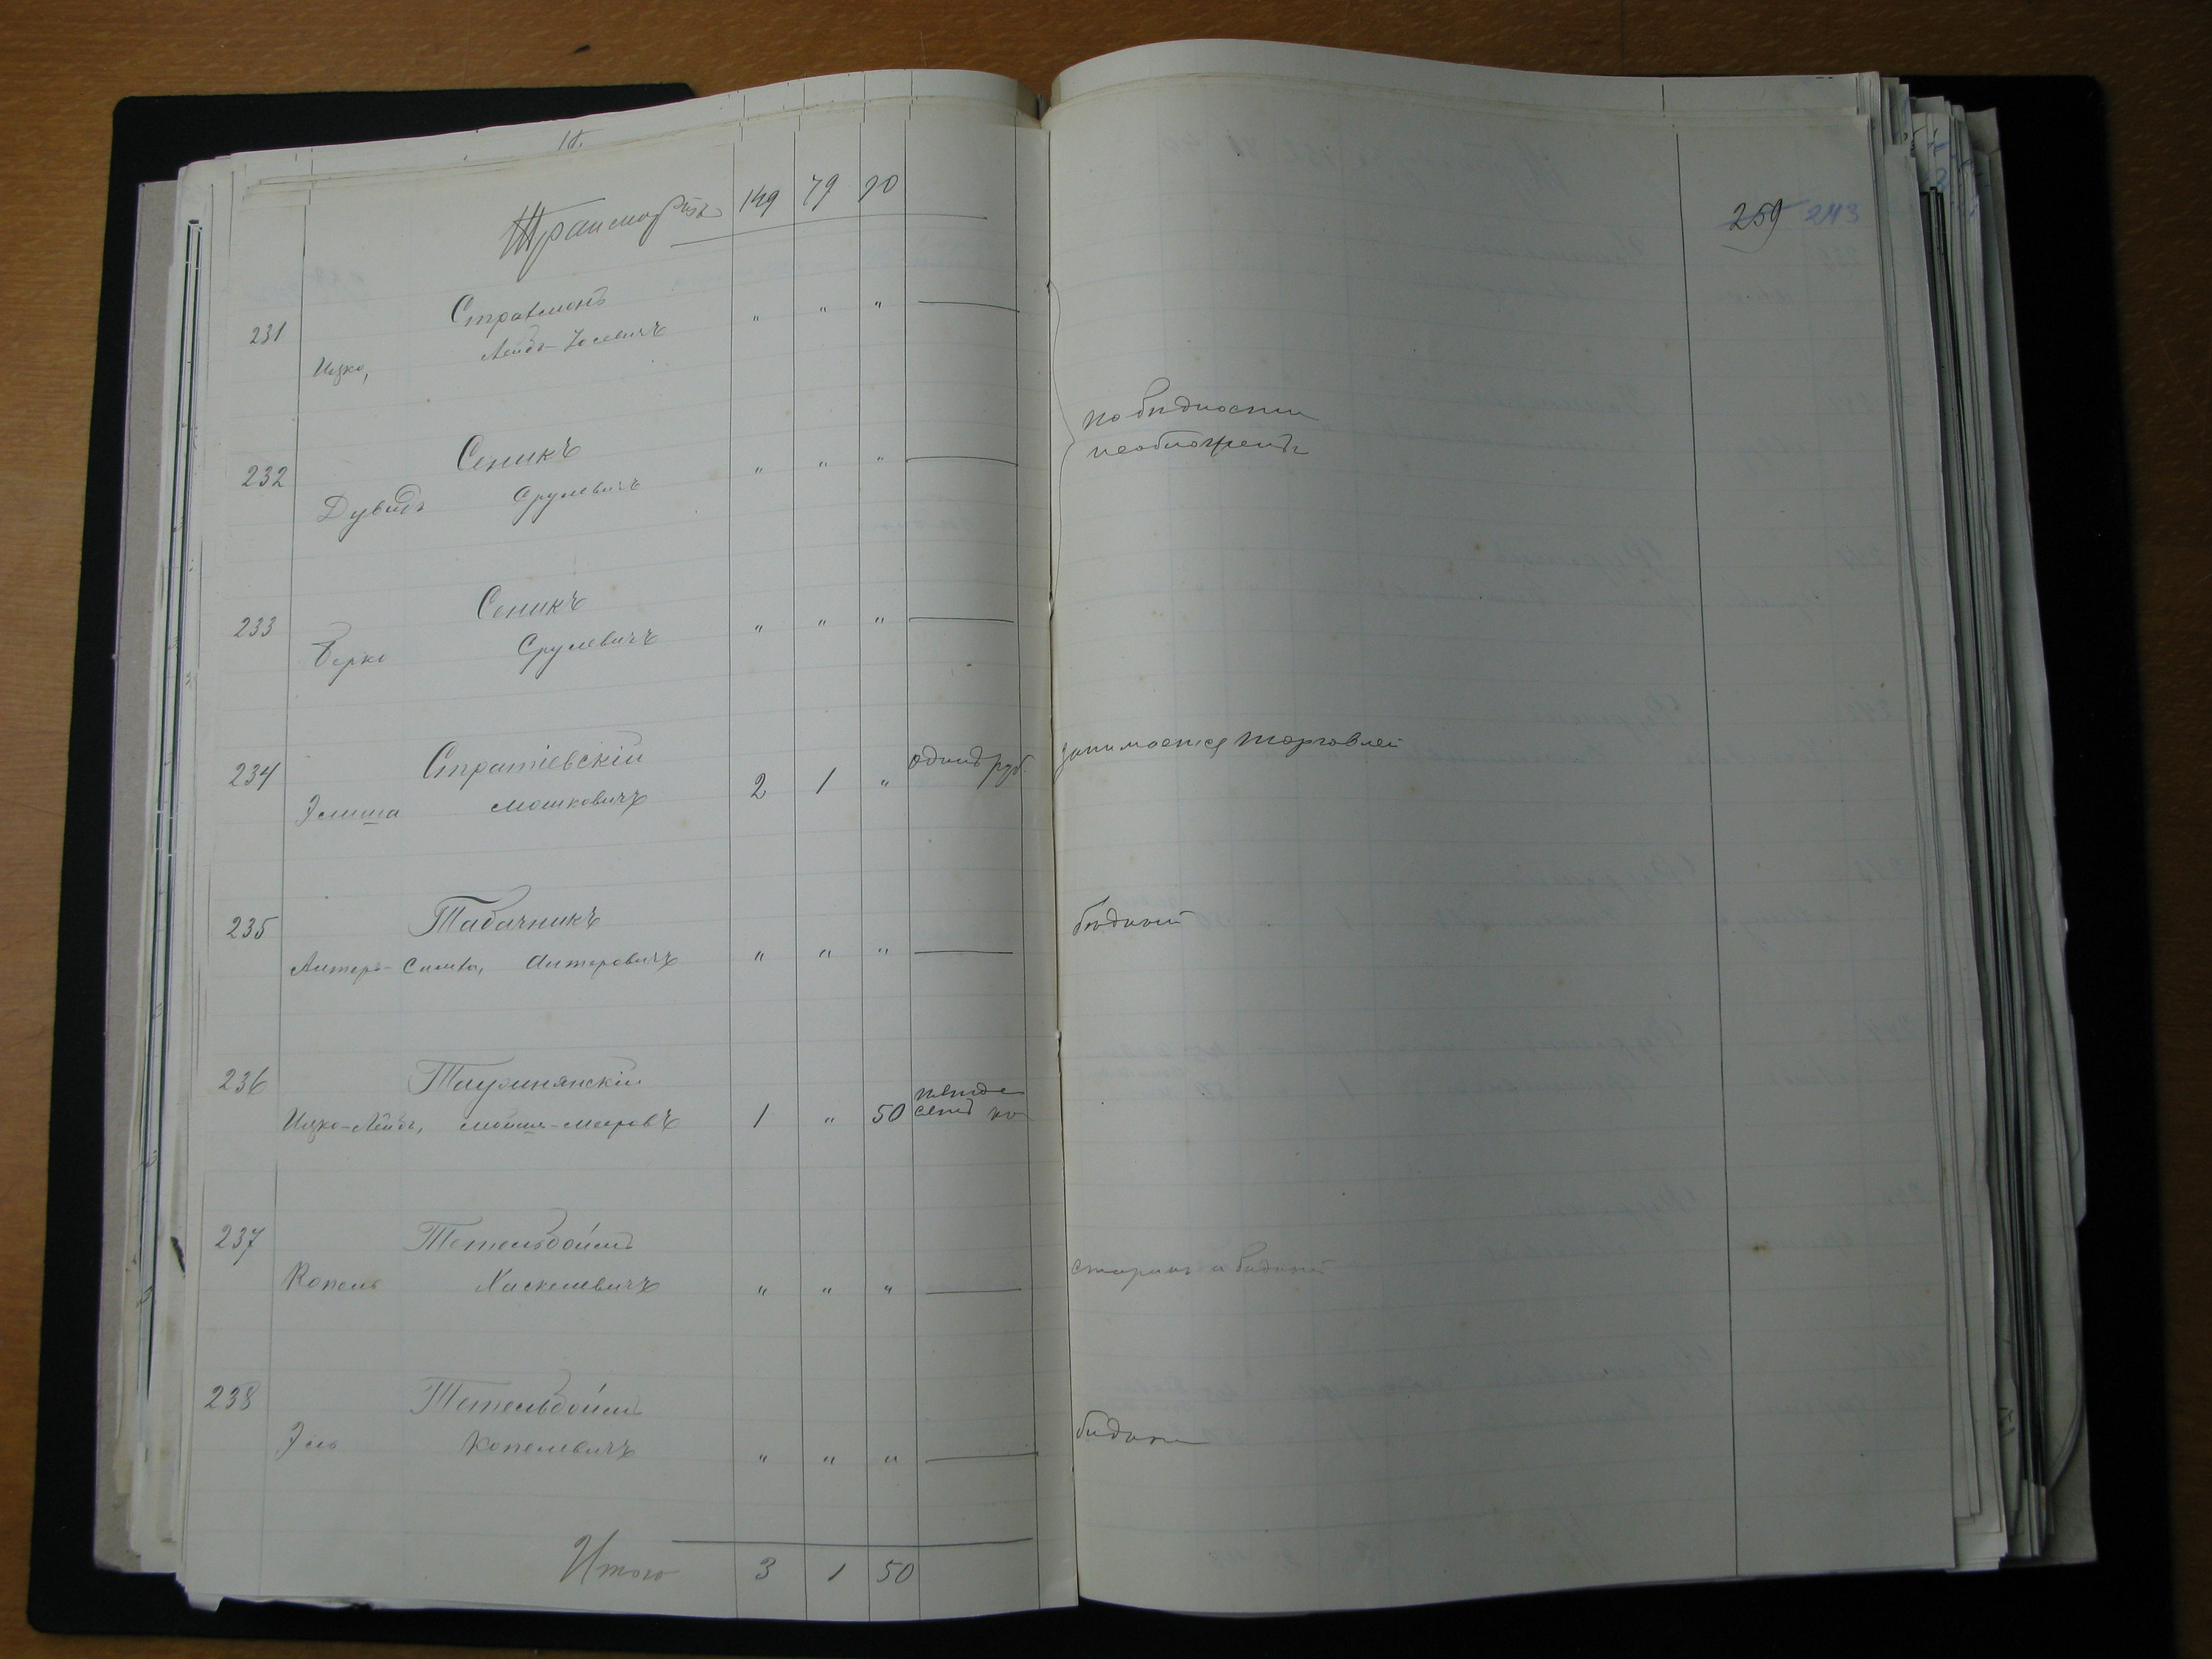 18.
Транспортъ 149 79 90
259 243
231
Ицко, Лейбъ-Іосевичъ " " "
по бѣдности
необложенъ
232 Сеникъ
Дувидъ Срулевичъ " " "
233 Сеникъ
Берко Срулевичъ " " "
234 Стратіевскій
Элиша Мошковичъ 2 1 " одинъ руб. занимается торговлей
235 Табачникъ
Алтеръ-Симха, Алтеровичъ " " "
бѣдный
236
Ицко-Лейбъ, Мойше-Мееровъ 1 " 50 пятьде
сятъ ко
237 Тетельбоймъ
Копель Хаскелевичъ " " "
старикъ и бѣдный
238 Тетельбоймъ
Эль Копелевичъ " " "
Итого 3 1 50